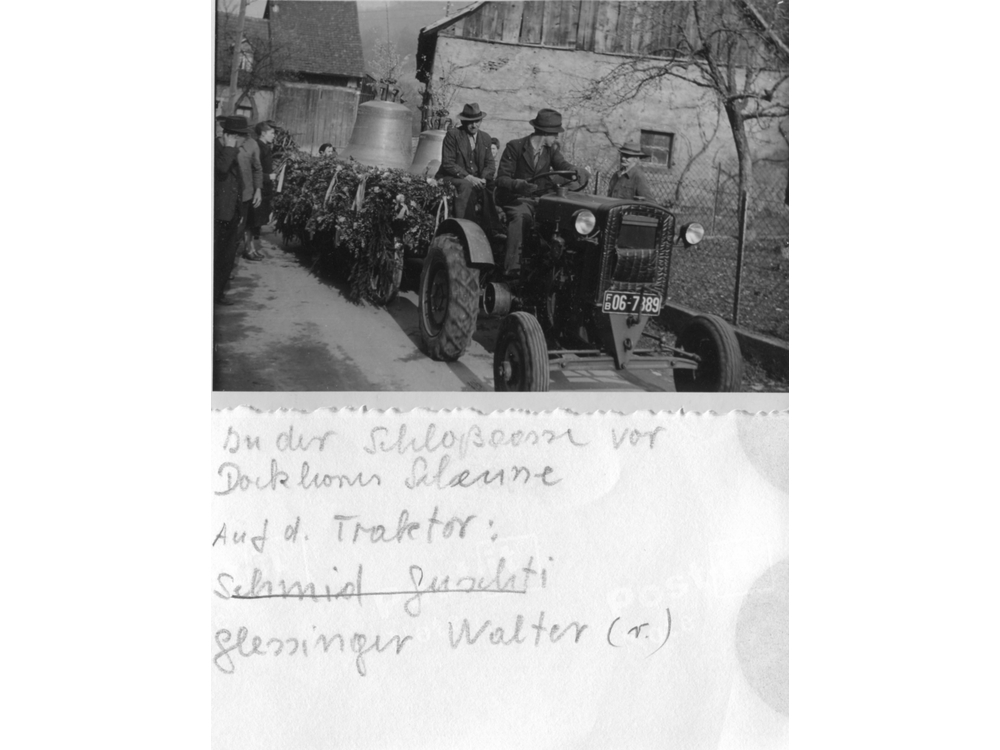 FB 06-7889
In der Schloßgasse vor
Dockhorns Scheune
Auf d. Traktor:
Schmid Guschti
Glessinger Walter (r.)